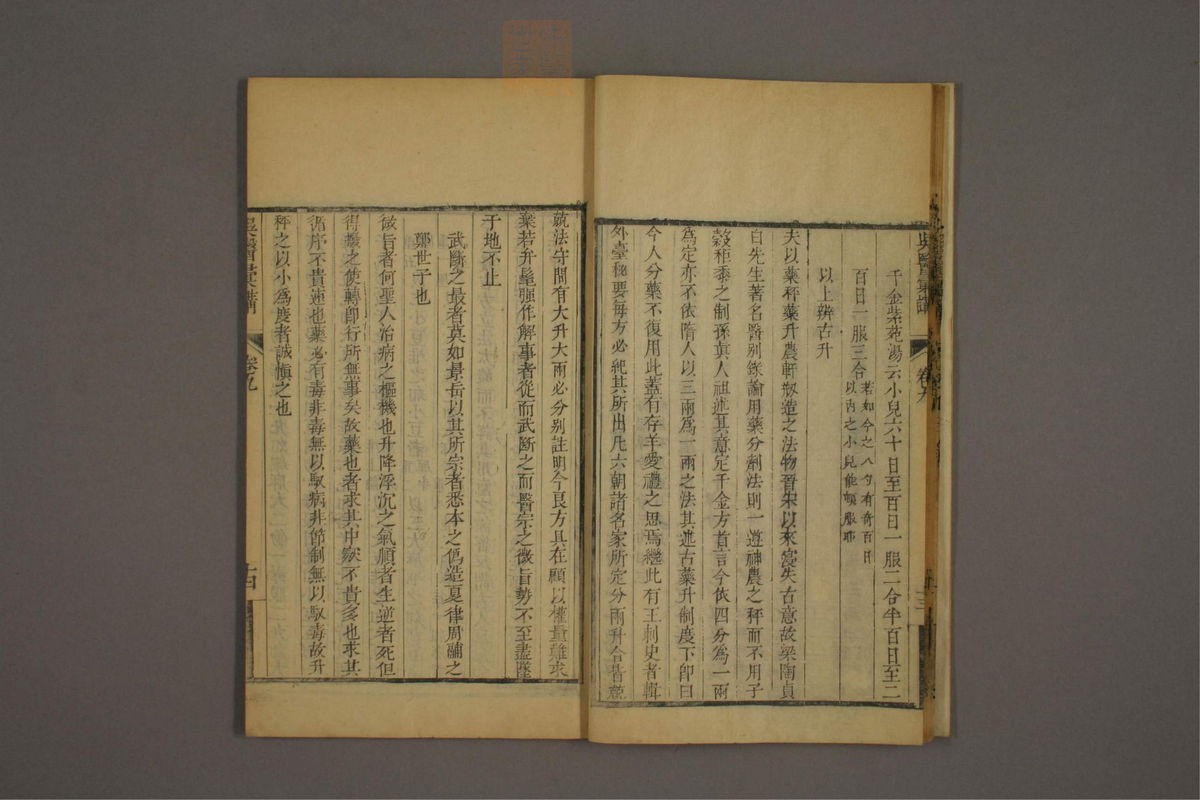 千金紫苑湯云小兒六十日至百日一服二合半百日至二
百日一服三合若如今之八勺有奇百日以內之小兒能頓服耶
以上辨古升
夫以藥秤藥升農軒剏造之法物晉宋以來寖失古意故梁陶貞
白先生著名醫別錄論用藥分劑法則一遵神農之秤而不用子
穀秬黍之制孫眞人祖述其意定千金方首言今依四分爲一兩
爲定亦不依隋人以三兩爲一兩之法其述古藥升制度下卽曰
今人分藥不復用此蓋有存羊愛禮之思焉繼此有王刺史者輯
外臺秘要每方必紀其所出凡六朝諸名家所定分兩升合皆兢
兢法守間有大升大兩必分別註明今良方具在顧以權量難求
棄若弁髦強作解事者從而武斷之而醫宗之微旨勢不至盡墜
于地不止
武斷之最者莫如景岳以其所宗者悉本之僞造夏律周鬴之
鄭世子也
微旨者何聖人治病之樞機也升降浮沉之氣順者生逆者死但
得撥之使轉卽行所無事矣故藥也者求其中窾不貴多也求其
循序不貴速也藥必有毒非毒無以馭病非節制無以馭毒故升
秤之以小爲度者誠愼之也
吳醫彙講
卷九
十四